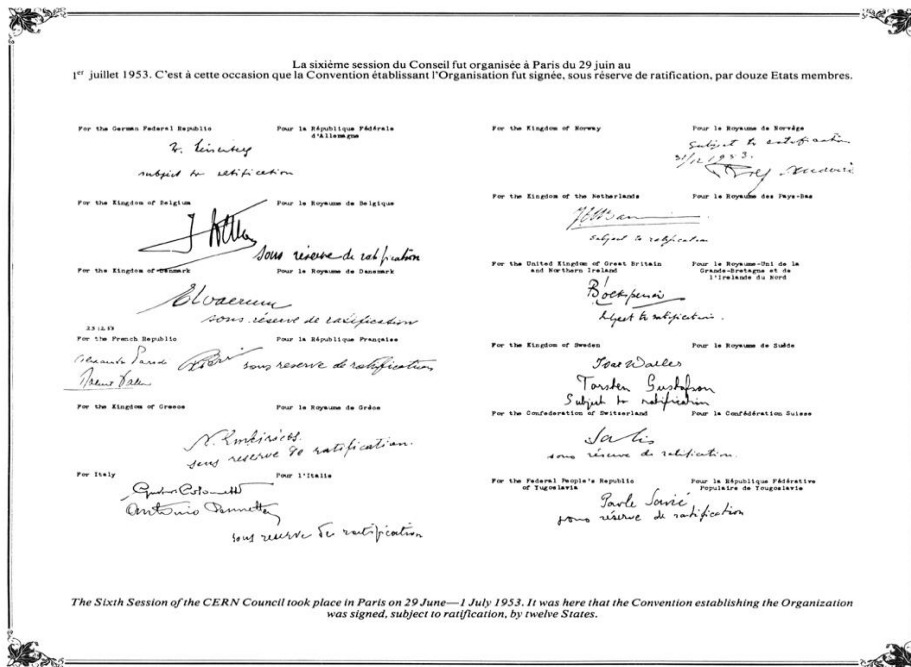 La sixième session du Conseil fut organisée à Paris du 29 juin au
1er juillet 1953. C'est à cette occasion que la Convention établissant l'Organisation fut signée, sous réserve de ratification, par douze Etats membres.
For the German Federal Republic
Pour la République Fédérale
d'Allemagne
subject to ratification
For the Kingdom of Belgium
Pour le Royaume de Belgique
sous réserve de ratification
For the Kingdom of Denmark
Pour le Royaume de Danemark
sous réserve de ratification
23.12.53
For the French Republic
Pour la République Française
sous reserve de ratification
For the Kingdom of Greece
Pour le Royaume de Grèce
sous reserve de ratification.
For Italy
Pour l'Italie
Antonio
sous reserve de ratification
For the Kingdom of Norway
Pour le Royaume de Norvège
Subject to ratification
31/12 1953.
For the Kingdom of the Netherlands
Pour le Royaume des Pays-Bas
subject to ratification
For the United Kingdom of Great Britain
and Northern Ireland
Pour le Royaume-Uni de la
Grande-Bretagne et de
l'Irelande du Nord
subject to ratification.
For the Kingdom of Sweden
Pour le Royaume de Suède
Ivar Waller
Torsten Gustafson
Subject to ratification
For the Confederation of Switzerland
Pour la Confédération Suisse
sous réserve de ratification.
For the Federal People's Republic
of Yugoslavia
Pour la République Fédérative
Populaire de Yougoslavie
Pavle Savić
sous réserve de ratification
The Sixth Session of the CERN Council took place in Paris on 29 June—1 July 1953. It was here that the Convention establishing the Organization
was signed, subject to ratification, by twelve States.